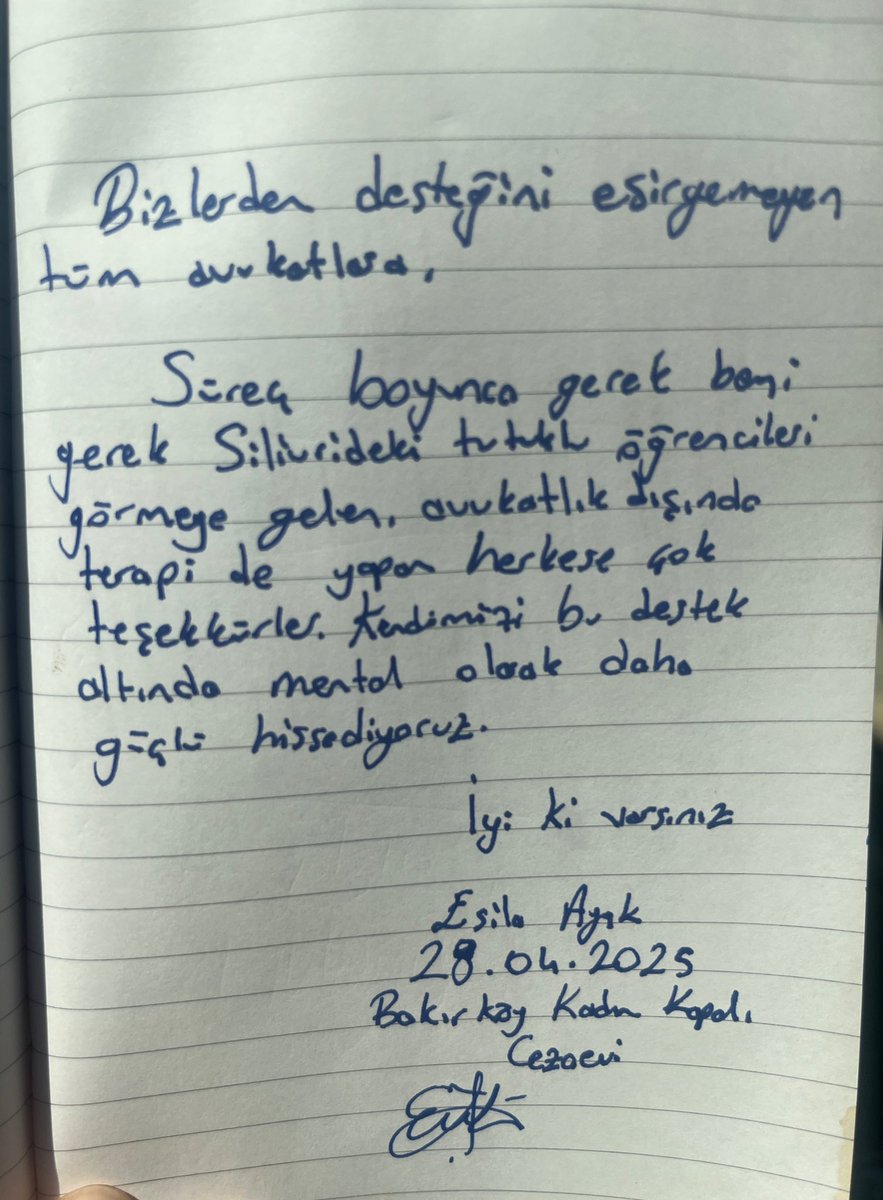 Bizlerden desteğini esirgemeyen
tüm avukatlara,
Süreç boyunca gerek beni
gerek Silivrideki tutuklu öğrencileri
görmeye gelen, avukatlık dışında
terapi de yapan herkese çok
teşekkürler. Kendimizi bu destek
altında mental olarak daha
güçlü hissediyoruz.
İyi ki varsınız
Esila Ayık
28.04.2025
Bakırköy Kadın Kapalı
Cezaevi